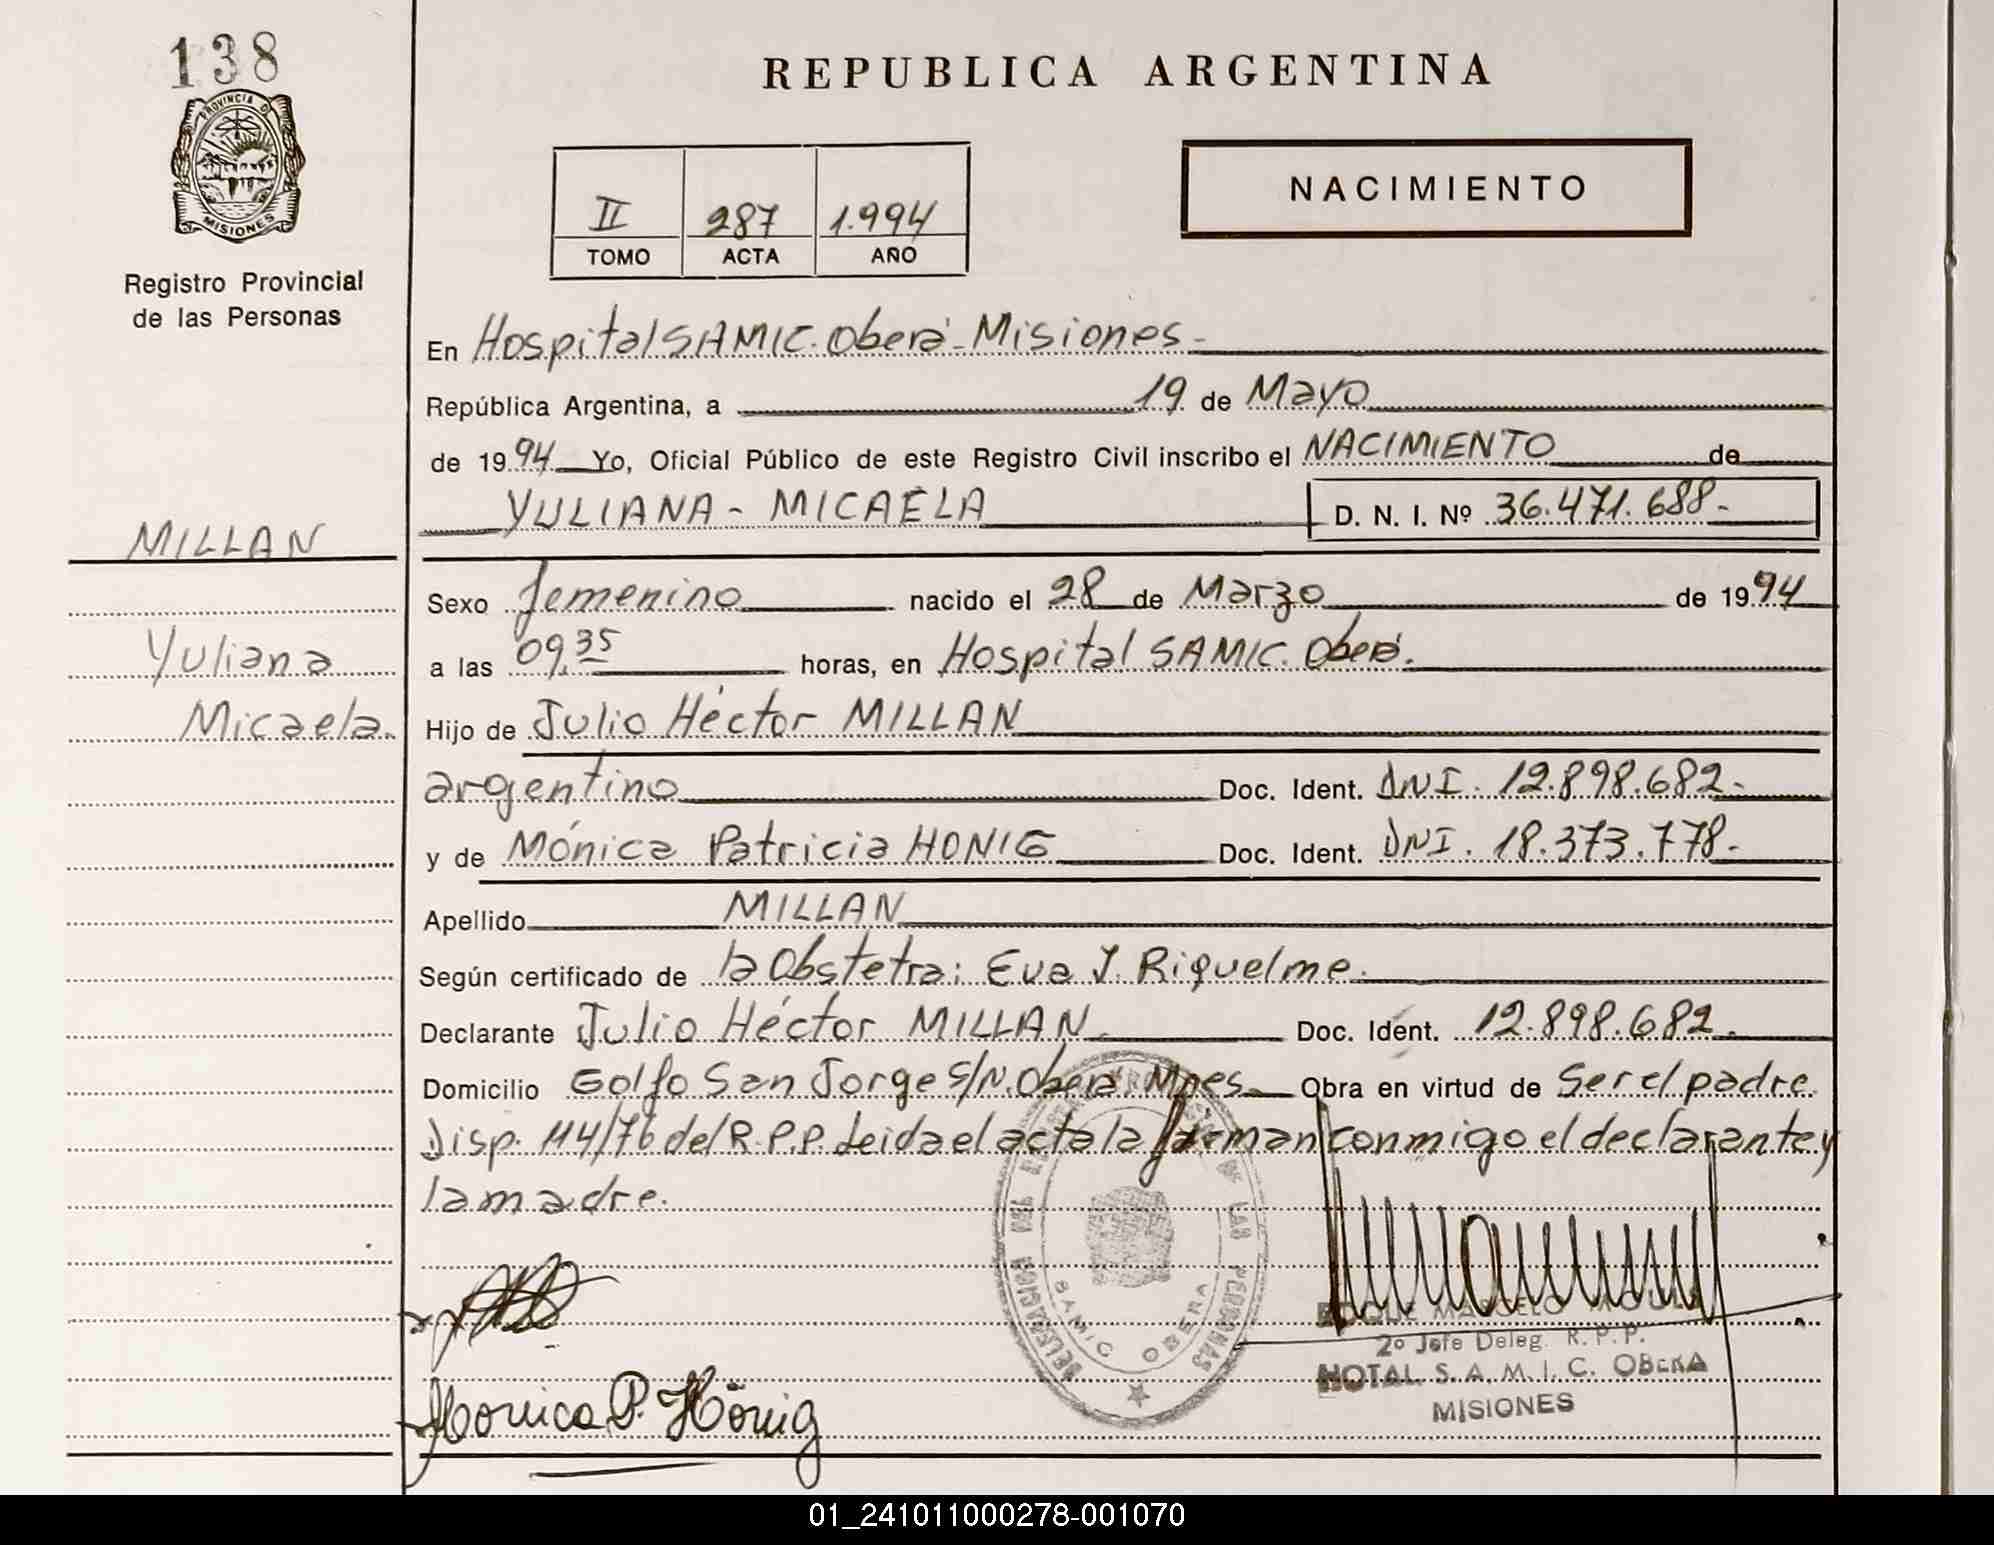 138
PROVINCIA D
MISIONES
Registro Provincial
de las Personas
REPUBLICA ARGENTINA
NACIMIENTO
II 287 1.994
TOMO ACTA AÑO
En Hospital SAMIC. Oberá - Misiones -
República Argentina, a 19 de Mayo
de 1994 Yo, Oficial Público de este Registro Civil inscribo el NACIMIENTO de
YULIANA - MICAELA D. N. I. Nº 36.471.688.-
MILLAN
Yuliana
Micaela.
Sexo femenino nacido el 28 de Marzo de 1994
a las 09,35 horas, en Hospital SAMIC. Oberá.
Hijo de Julio Héctor MILLAN
argentino Doc. Ident. DNI. 12.898.682.-
y de Mónica Patricia HONIG Doc. Ident. DNI. 18.373.778.-
Apellido MILLAN
Según certificado de la Obstetra: Eva J. Riquelme.
Declarante Julio Héctor MILLAN. Doc. Ident. 12.898.682.
Domicilio Golfo San Jorge S/N. Oberá Mnes. Obra en virtud de Ser el padre.
Disp. 114/76 del R.P.P. Leida el acta la firman conmigo el declarante y
la madre.
DELEGACION DE LAS PERSONAS
SAMIC OBERA
ROQUE MARCELO
2º Jefe Deleg. R. P. P.
HOTAL S. A. M. I. C. OBERA
MISIONES
Monica P. Hönig
01_241011000278-001070